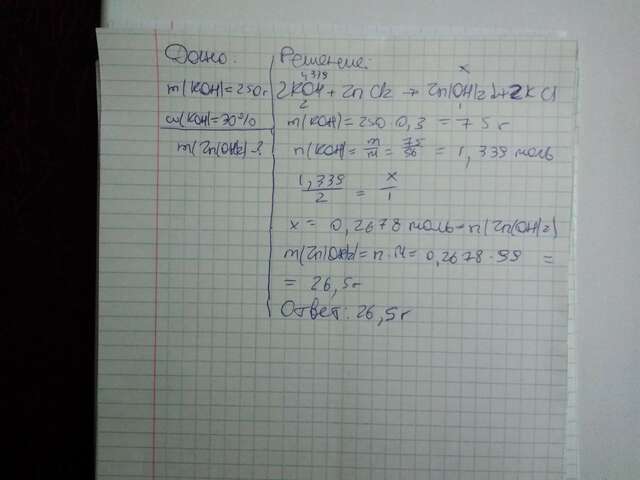 Дано:
m(KOH)=250г
ω(KOH)=30%
m(Zn(OH)2)-?
Решение:
1,339 x
2KOH + ZnCl2 → Zn(OH)2↓+2KCl
2 1
m(KOH)=250·0,3 = 75г
n(KOH)= m/M = 75/56 = 1,339 моль
1,339/2 = x/1
x = 0,2678 моль-n(Zn(OH)2)
m(Zn(OH)2)=n·M=0,2678·99 =
= 26,5г
Ответ: 26,5г